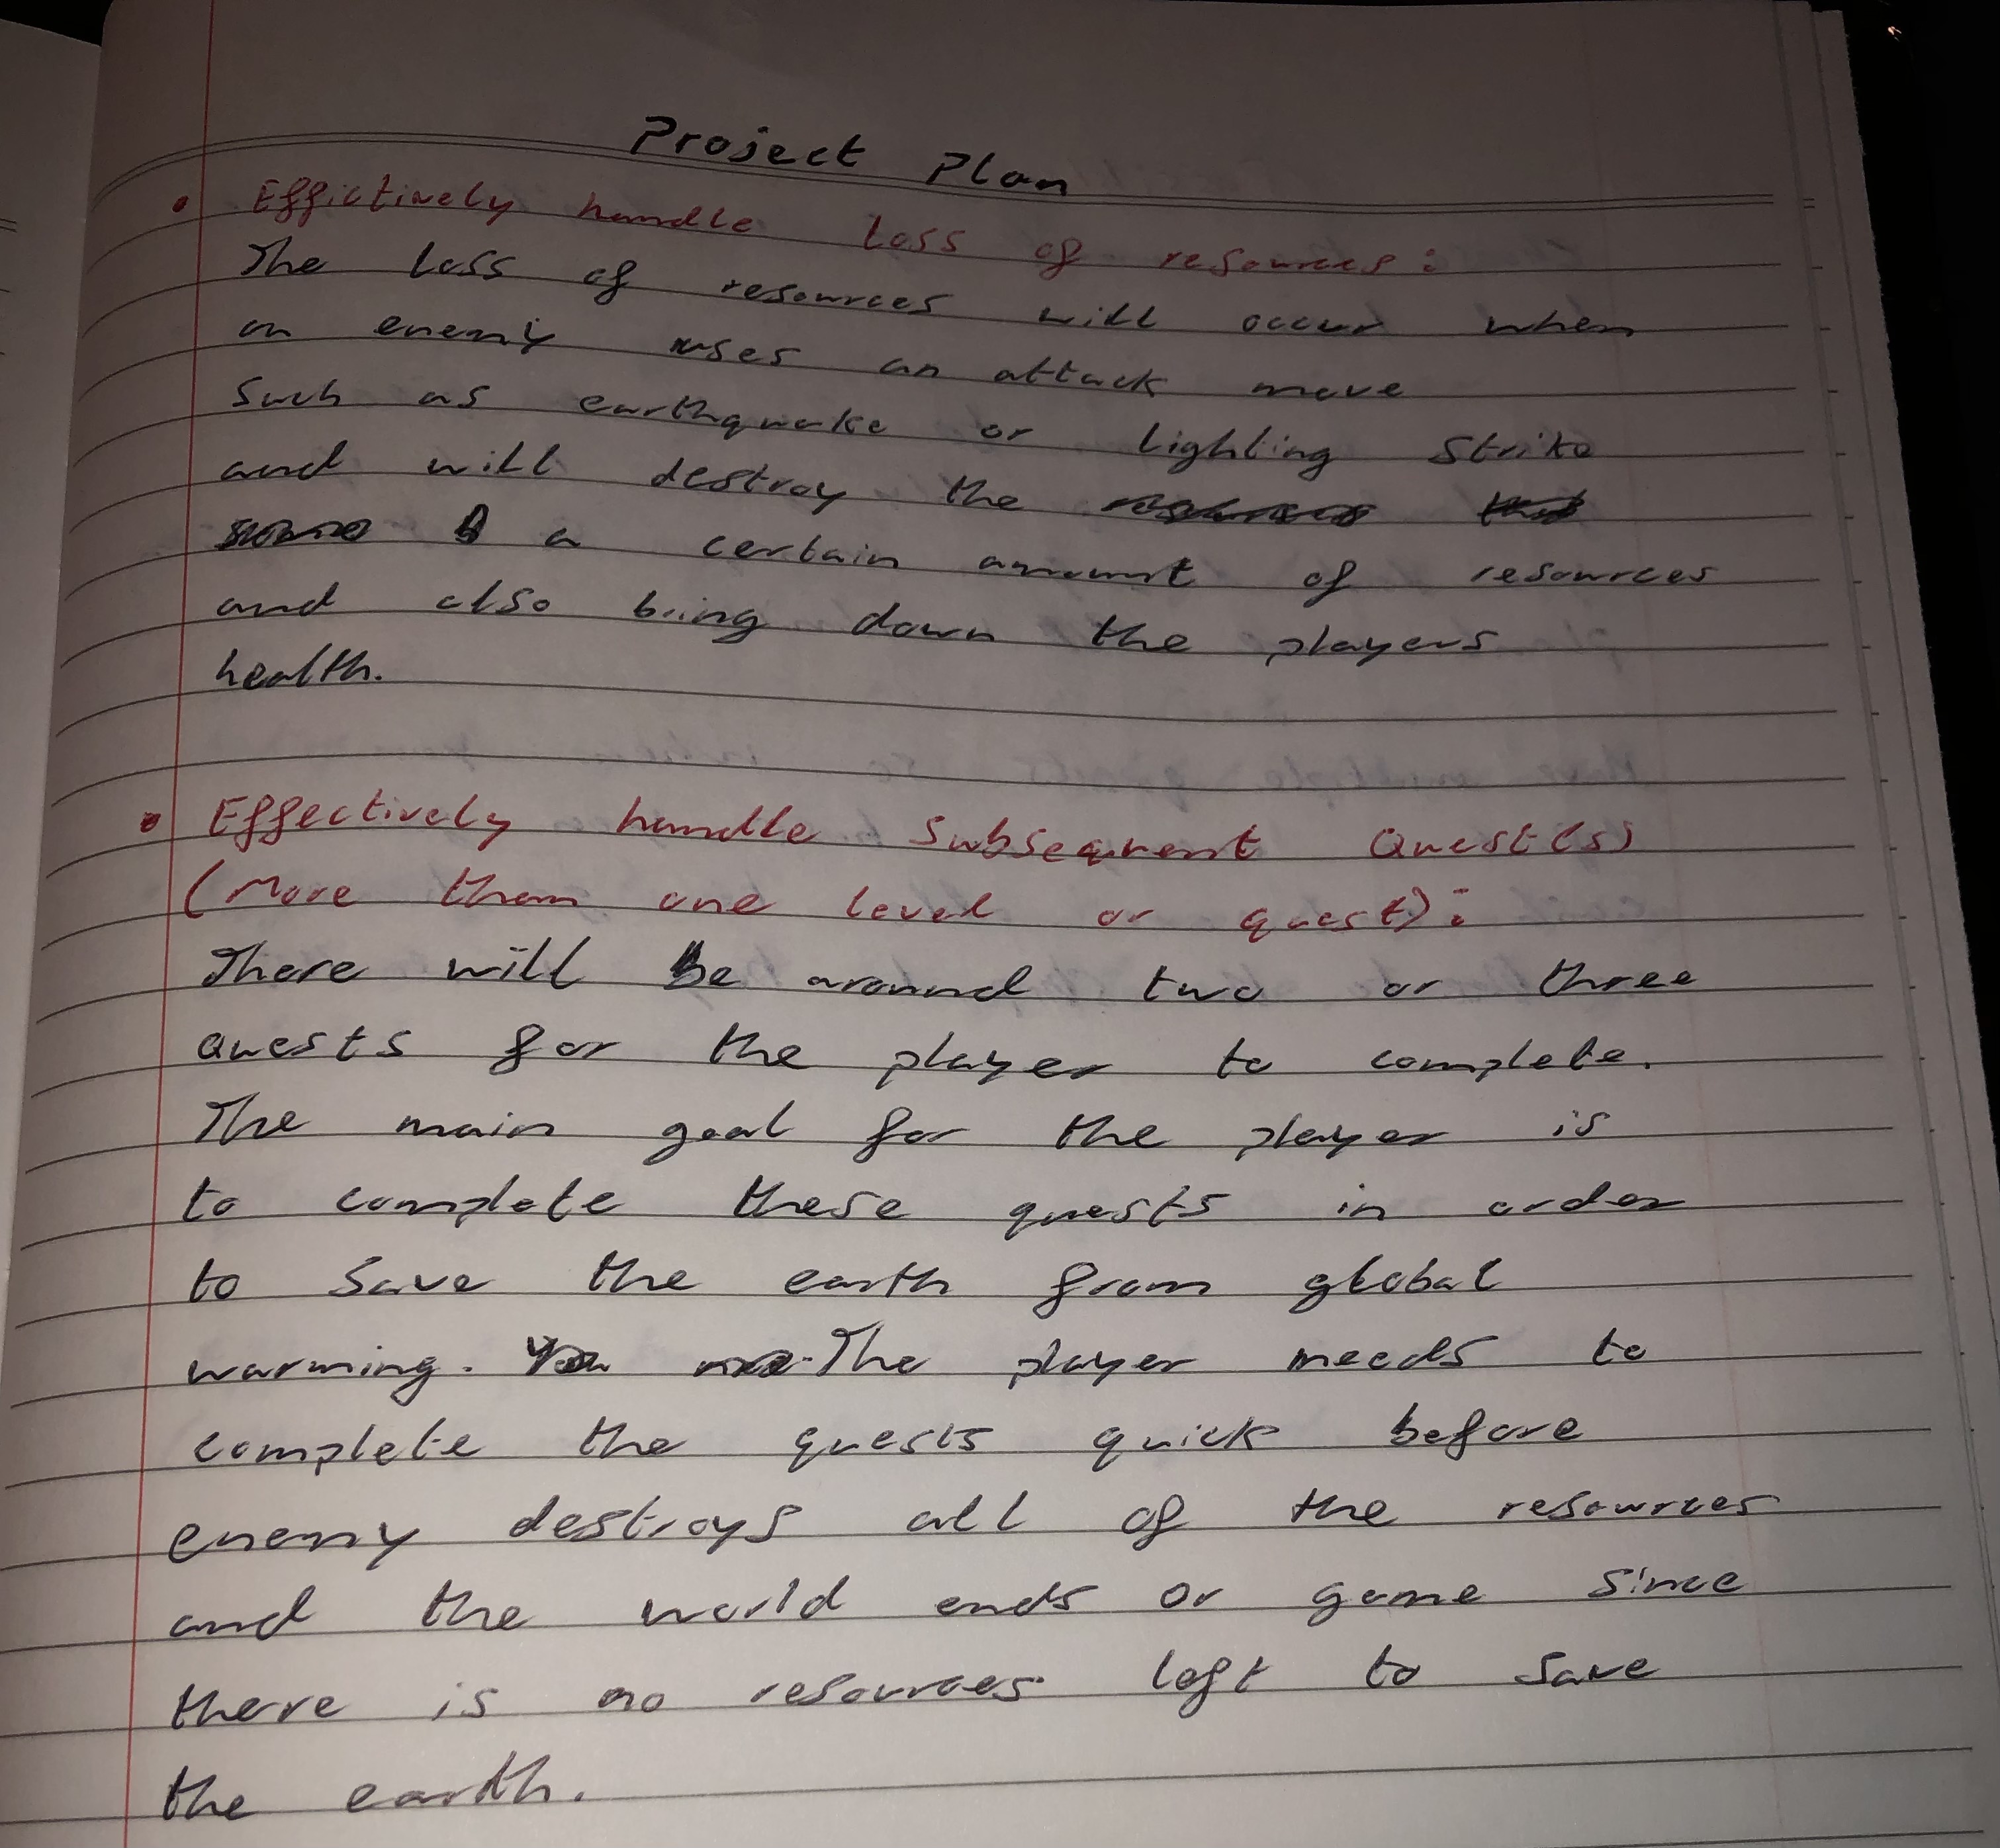 Project Plan
• Effictively handle loss of resources:
The loss of resources will occur when
an enemy uses an attack move
such as earthquake or lighting strike
and will destroy the
a certain amount of resources
and also bring down the players
health.
• Effectively handle Subsequent Quest(s)
(More than one level or quest):
There will be around two or three
quests for the player to complete.
The main goal for the player is
to complete these quests in order
to save the earth from global
warming. The player needs to
complete the quests quick before
enemy destroys all of the resources
and the world ends or game since
there is no resources left to save
the earth.